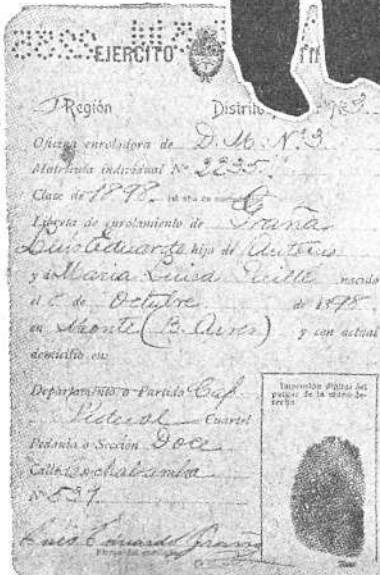 EJERCITO
Región Distrito
Oficina enroladora de D. M. Nº 3
Matrícula individual Nº 2235
Clase de 1898
Libreta de enrolamiento de Graña
Luis Eduardo hijo de Antonio
y de Maria Luisa nacido
el de Octubre de 1898
en Monte (B. Aires) y con actual
domicilio en:
Departamento o Partido Cap
Federal Cuartel
Pedanía o Sección Doce
Calle Cochabamba
Nº 537
Impresión digital del
pulgar de la mano de-
recha
Luis Eduardo Graña